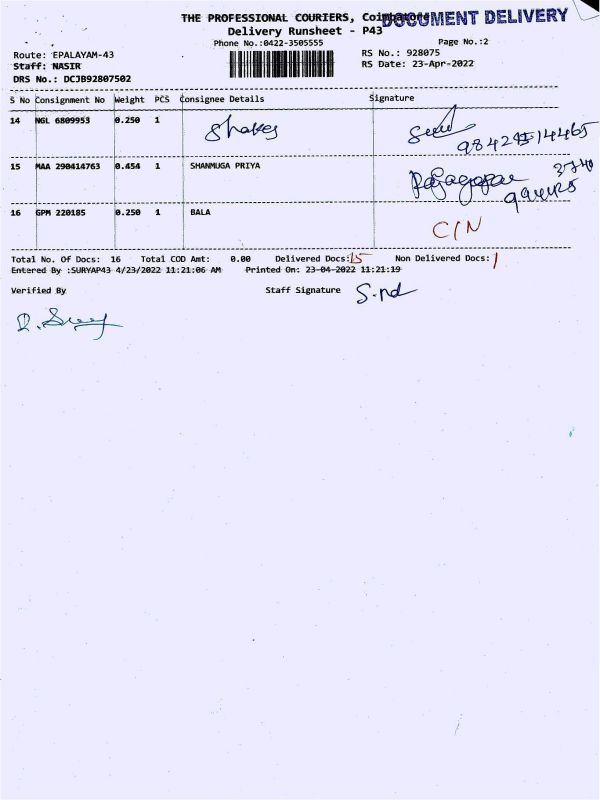 THE PROFESSIONAL COURIERS, Coimbatore
DOCUMENT DELIVERY
Delivery Runsheet - P43
Phone No.:0422-3505555
Page No.:2
Route: EPALAYAM-43
RS No.: 928075
Staff: NASIR
RS Date: 23-Apr-2022
DRS No.: DCJB92807502
S No Consignment No Weight PCS Consignee Details Signature
14 NGL 6809953 0.250 1
15 MAA 290414763 0.454 1 SHANMUGA PRIYA
16 GPM 220185 0.250 1 BALA
C/N
Total No. Of Docs: 16 Total COD Amt: 0.00 Delivered Docs: 15 Non Delivered Docs: 1
Entered By :SURYAP43 4/23/2022 11:21:06 AM Printed On: 23-04-2022 11:21:19
Verified By Staff Signature